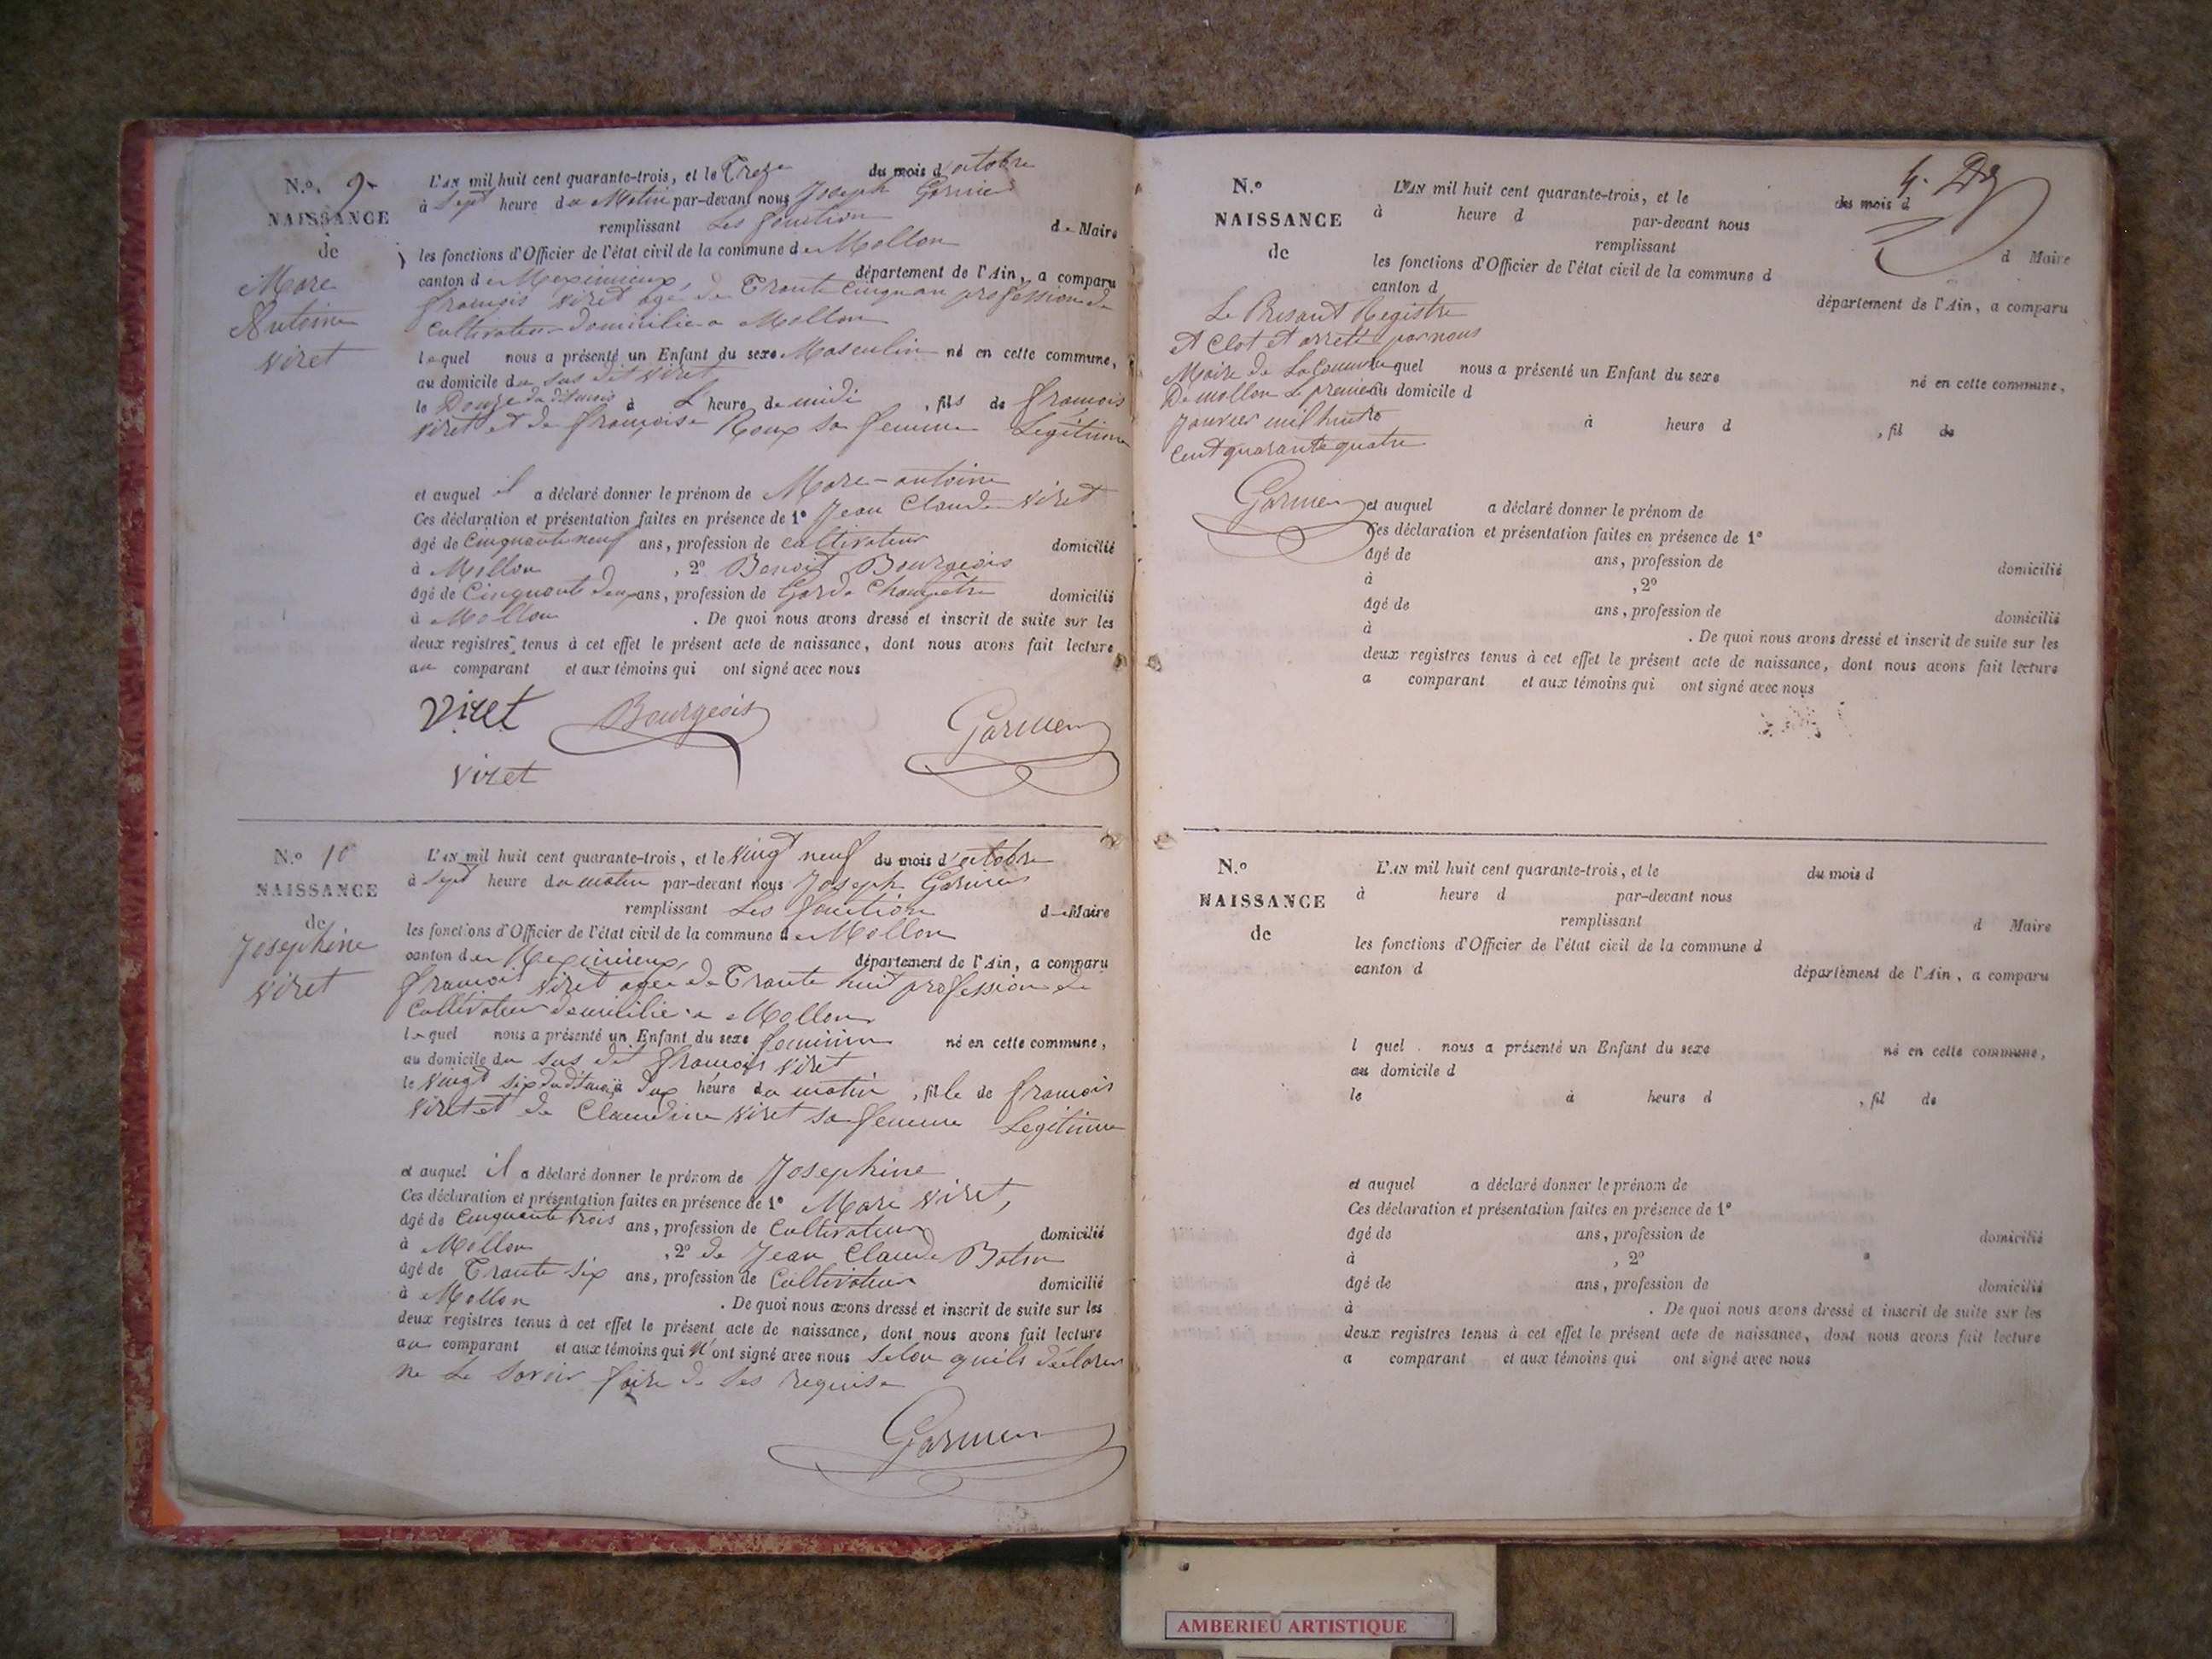 N.o 9
NAISSANCE
de
Marc
Antoine
Viret
L'AN mil huit cent quarante-trois, et le Treze du mois d'octobre
à Sept heure du Matin par-devant nous Joseph Garnier
remplissant Les fonction de Maire
les fonctions d'Officier de l'état civil de la commune de Mollon
canton de Meximieux, département de l'Ain, a comparu
francois Viret agé de Trante cinq an profession de
Cultivateur domicilié a Mollon
lequel nous a présenté un Enfant du sexe Masculin né en cette commune,
au domicile du sus dit Viret
le Douze du dit mois à L heure de midi , fils de francois
Viret et de françoise Roux sa femme Legitime
et auquel il a déclaré donner le prénom de Marc-antoine
Ces déclaration et présentation faites en présence de 1º Jean Claude Viret
âgé de Cinquante neuf ans, profession de cultivateur domicilié
à Mollon , 2º Benoit Bourgeois
âgé de Cinquante deux ans, profession de Garde Champêtre domicilié
à Mollon . De quoi nous avons dressé et inscrit de suite sur les
deux registres tenus à cet effet le présent acte de naissance, dont nous avons fait lecture
au comparant et aux témoins qui ont signé avec nous
Viret Bourgeois Garnier
Viret
N.o 10
NAISSANCE
de
Josephine
Viret
L'AN mil huit cent quarante-trois, et le Vingt neuf du mois d'octobre
à Sept heure du matin par-devant nous Joseph Garnier
remplissant Les fonction de Maire
les fonctions d'Officier de l'état civil de la commune de Mollon
canton de Meximieux, département de l'Ain, a comparu
francois Viret agée de Trante huit profession de
Cultivateur domicilié a Mollon
lequel nous a présenté un Enfant du sexe feminin né en cette commune,
au domicile du sus dit francois Viret
le Vingt six du dit mois à Dix heure du matin , fille de francois
Viret et de Claudine Viret sa femme Legitime
et auquel il a déclaré donner le prénom de Josephine
Ces déclaration et présentation faites en présence de 1º Marc Viret,
âgé de Cinquante trois ans, profession de Cultivateur domicilié
à Mollon , 2º de Jean Claude
âgé de Trante six ans, profession de Cultivateur domicilié
à Mollon . De quoi nous avons dressé et inscrit de suite sur les
deux registres tenus à cet effet le présent acte de naissance, dont nous avons fait lecture
au comparant et aux témoins qui n'ont signé avec nous selon quils déclaren
ne Le Savoir faire de Ses requise
Garnier
N.o
NAISSANCE
de
L'AN mil huit cent quarante-trois, et le du mois d
à heure d par-devant nous
remplissant d Maire
les fonctions d'Officier de l'état civil de la commune d
canton d département de l'Ain, a comparu
Le Presant Registre
et Clot et arretté par nous
Maire de La Commune
De mollon Le premier
Janvier mil huit
Cent quarante quatre
Garnier
l quel nous a présenté un Enfant du sexe né en cette commune,
au domicile d
à heure d , fil de
et auquel a déclaré donner le prénom de
Ces déclaration et présentation faites en présence de 1º
âgé de ans, profession de domicilié
à , 2º
âgé de ans, profession de domicilié
à . De quoi nous avons dressé et inscrit de suite sur les
deux registres tenus à cet effet le présent acte de naissance, dont nous avons fait lecture
a comparant et aux témoins qui ont signé avec nous
N.o
NAISSANCE
de
L'AN mil huit cent quarante-trois, et le du mois d
à heure d par-devant nous
remplissant d Maire
les fonctions d'Officier de l'état civil de la commune d
canton d département de l'Ain, a comparu
l quel nous a présenté un Enfant du sexe né en cette commune,
au domicile d
le à heure d , fil de
et auquel a déclaré donner le prénom de
Ces déclaration et présentation faites en présence de 1º
âgé de ans, profession de domicilié
à , 2º
âgé de ans, profession de domicilié
à . De quoi nous avons dressé et inscrit de suite sur les
deux registres tenus à cet effet le présent acte de naissance, dont nous avons fait lecture
a comparant et aux témoins qui ont signé avec nous
AMBERIEU ARTISTIQUE